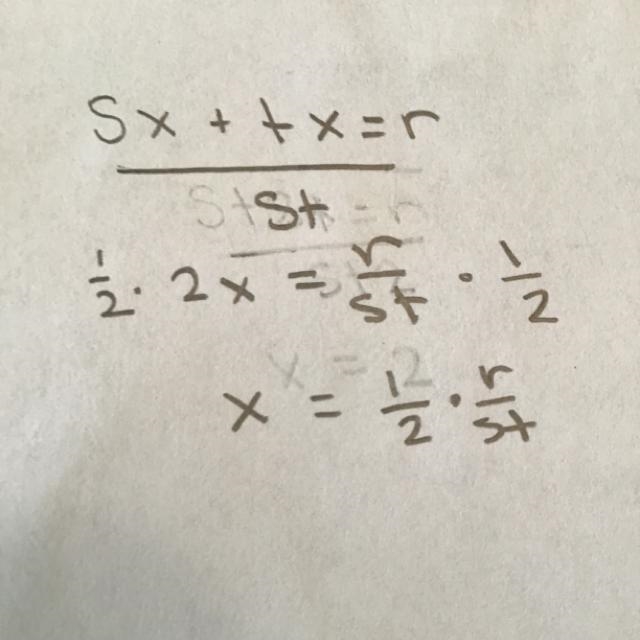 Sx + tx = r
St
1/2 · 2x = r/st · 1/2
x = 1/2 · r/st